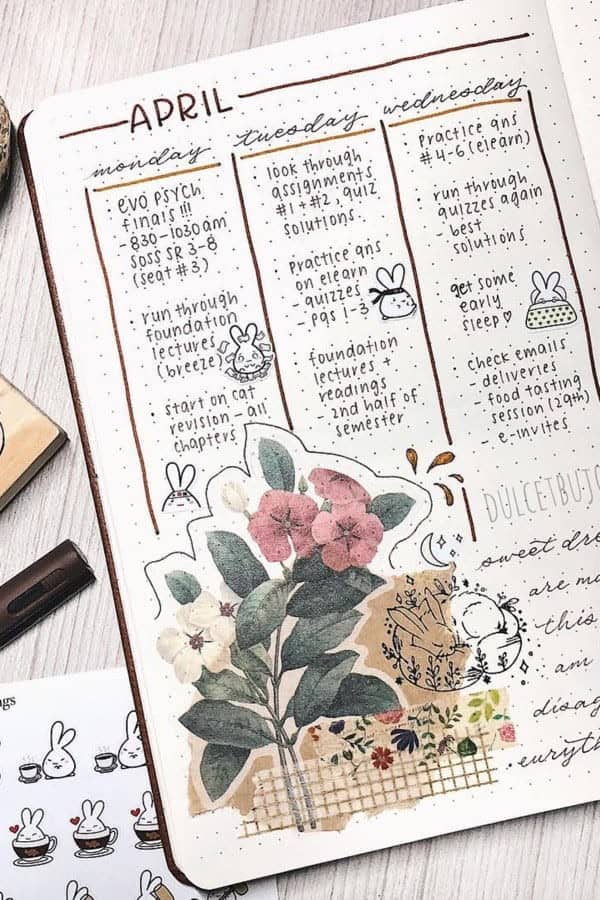 APRIL
monday
: EVO PSYCH
finals !!!
- 830-1030am
SOSS SR 3-8
(seat #3)
· run through
foundation
lectures
(breeze)
· start on cat
revision - all
chapters
tuesday
: look through
assignments
#1 + #2, quiz
solutions.
: practice qns
on elearn
- quizzes
- pgs 1-3
: foundation
lectures +
readings
- 2nd half of
semester
wednesday
: practice qns
#4-6 (elearn)
· run through
quizzes again
- best
solutions
: get some
early
sleep ♡
· check emails
- deliveries
- food tasting
session (29th)
- e-invites
DULCETBUJO
sweet dre
are ma
this
am
disag
euryth
gs